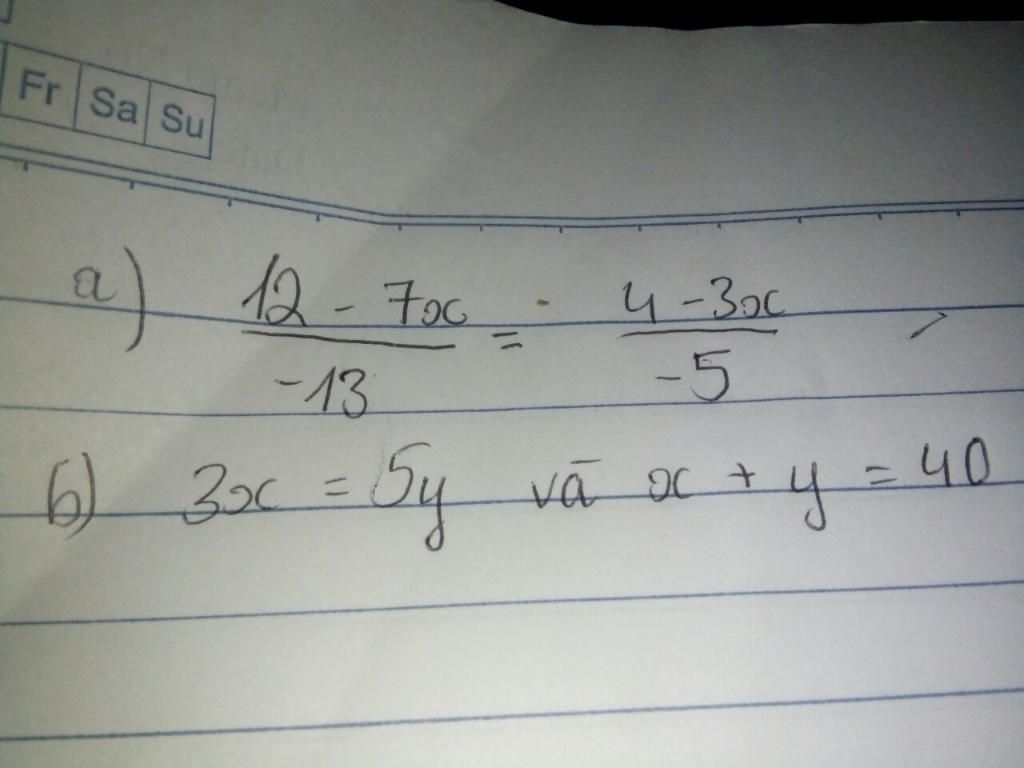 Fr Sa Su
a) 12 - 7x / -13 = 4 - 3x / -5
b) 3x = 5y và x + y = 40